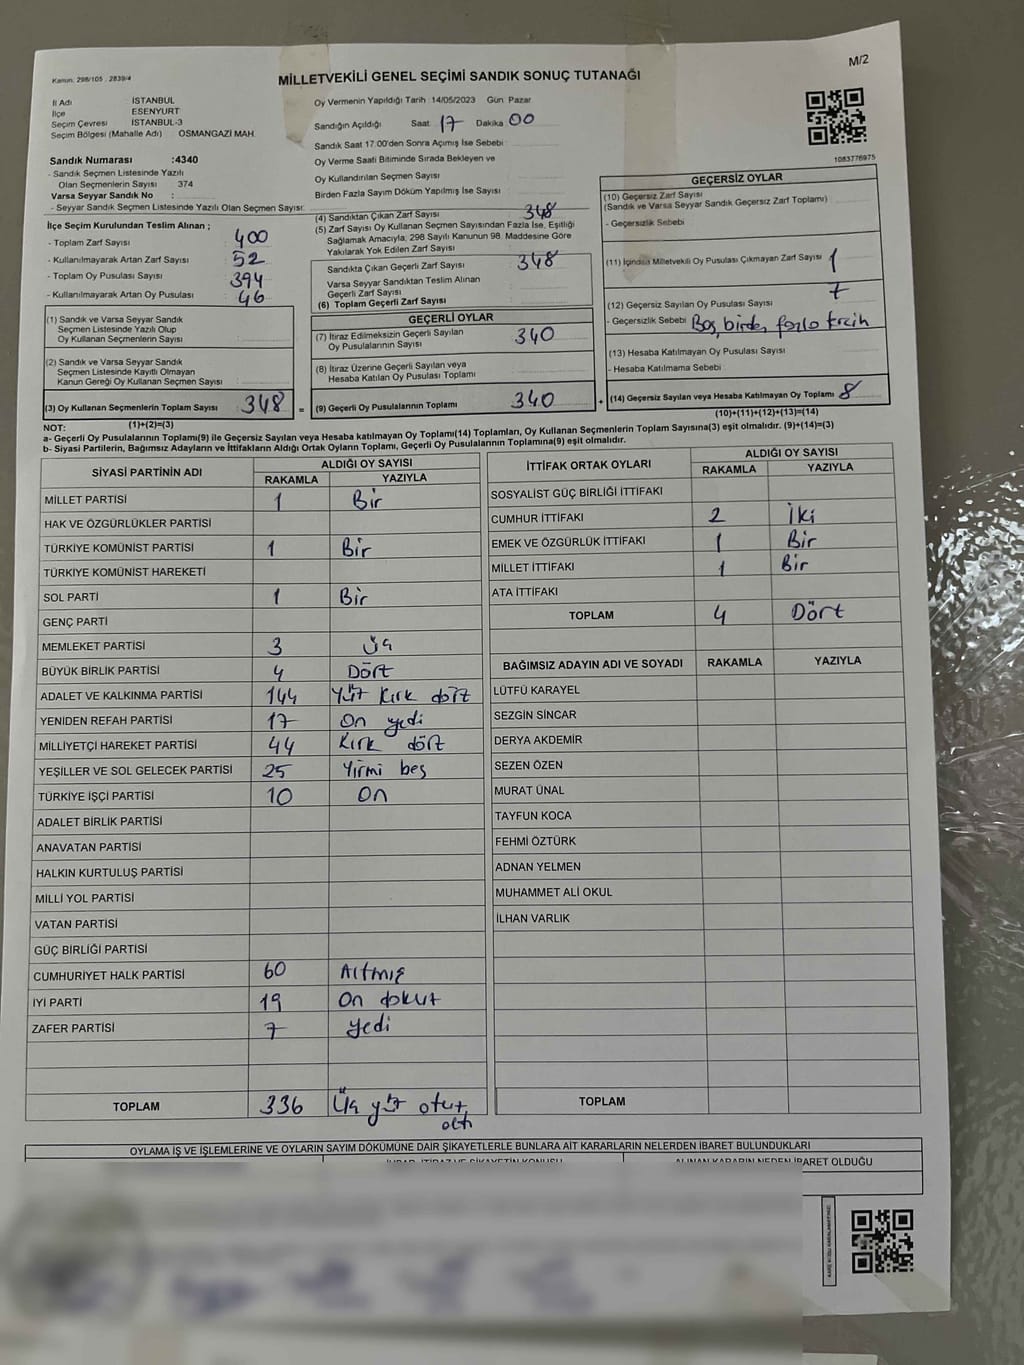 M/2
Kanun, 298/105 , 2839/4
MİLLETVEKİLİ GENEL SEÇİMİ SANDIK SONUÇ TUTANAĞI
İl Adı İSTANBUL
İlçe ESENYURT
Seçim Çevresi İSTANBUL-3
Seçim Bölgesi (Mahalle Adı) OSMANGAZİ MAH.
Sandık Numarası :4340
- Sandık Seçmen Listesinde Yazılı
Olan Seçmenlerin Sayısı 374
Varsa Seyyar Sandık No :
- Seyyar Sandık Seçmen Listesinde Yazılı Olan Seçmen Sayısı:
Oy Vermenin Yapıldığı Tarih :14/05/2023 Gün Pazar
Sandığın Açıldığı Saat 17 Dakika 00
Sandık Saat 17:00'den Sonra Açımış İse Sebebi :
Oy Verme Saati Bitiminde Sırada Bekleyen ve
Oy Kullandırılan Seçmen Sayısı
Birden Fazla Sayım Döküm Yapılmış İse Sayısı
1083776975
İlçe Seçim Kurulundan Teslim Alınan ;
- Toplam Zarf Sayısı : 400
- Kullanılmayarak Artan Zarf Sayısı : 52
- Toplam Oy Pusulası Sayısı : 394
- Kullanılmayarak Artan Oy Pusulası : 46
(1) Sandık ve Varsa Seyyar Sandık
Seçmen Listesinde Yazılı Olup
Oy Kullanan Seçmenlerin Sayısı
(2) Sandık ve Varsa Seyyar Sandık
Seçmen Listesinde Kayıtlı Olmayan
Kanun Gereği Oy Kullanan Seçmen Sayısı
(3) Oy Kullanan Seçmenlerin Toplam Sayısı 348 =
(1)+(2)=(3)
(4) Sandıktan Çıkan Zarf Sayısı 348
(5) Zarf Sayısı Oy Kullanan Seçmen Sayısından Fazla İse, Eşitliği
Sağlamak Amacıyla, 298 Sayılı Kanunun 98. Maddesine Göre
Yakılarak Yok Edilen Zarf Sayısı
Sandıkta Çıkan Geçerli Zarf Sayısı 348
Varsa Seyyar Sandıktan Teslim Alınan
Geçerli Zarf Sayısı
(6) Toplam Geçerli Zarf Sayısı
GEÇERLİ OYLAR
(7) İtiraz Edilmeksizin Geçerli Sayılan
Oy Pusulalarının Sayısı 340
(8) İtiraz Üzerine Geçerli Sayılan veya
Hesaba Katılan Oy Pusulası Toplamı
(9) Geçerli Oy Pusulalarının Toplamı 340 +
GEÇERSİZ OYLAR
(10) Geçersiz Zarf Sayısı
(Sandık ve Varsa Seyyar Sandık Geçersiz Zarf Toplamı)
- Geçersizlik Sebebi
(11) İçinden Milletvekili Oy Pusulası Çıkmayan Zarf Sayısı 1
(12) Geçersiz Sayılan Oy Pusulası Sayısı 7
- Geçersizlik Sebebi Boş, birden fazla tercih
(13) Hesaba Katılmayan Oy Pusulası Sayısı
- Hesaba Katılmama Sebebi
(14) Geçersiz Sayılan veya Hesaba Katılmayan Oy Toplamı 8
(10)+(11)+(12)+(13)=(14)
NOT:
a- Geçerli Oy Pusulalarının Toplamı(9) ile Geçersiz Sayılan veya Hesaba katılmayan Oy Toplamı(14) Toplamları, Oy Kullanan Seçmenlerin Toplam Sayısına(3) eşit olmalıdır. (9)+(14)=(3)
b- Siyasi Partilerin, Bağımsız Adayların ve İttifakların Aldığı Ortak Oyların Toplamı, Geçerli Oy Pusulalarının Toplamına(9) eşit olmalıdır.
SİYASİ PARTİNİN ADI ALDIĞI OY SAYISI
RAKAMLA YAZIYLA
MİLLET PARTİSİ 1 Bir
HAK VE ÖZGÜRLÜKLER PARTİSİ
TÜRKİYE KOMÜNİST PARTİSİ 1 Bir
TÜRKİYE KOMÜNİST HAREKETİ
SOL PARTİ 1 Bir
GENÇ PARTİ
MEMLEKET PARTİSİ 3 Üç
BÜYÜK BİRLİK PARTİSİ 4 Dört
ADALET VE KALKINMA PARTİSİ 144 Yüz Kırk dört
YENİDEN REFAH PARTİSİ 17 On yedi
MİLLİYETÇİ HAREKET PARTİSİ 44 Kırk dört
YEŞİLLER VE SOL GELECEK PARTİSİ 25 Yirmi beş
TÜRKİYE İŞÇİ PARTİSİ 10 On
ADALET BİRLİK PARTİSİ
ANAVATAN PARTİSİ
HALKIN KURTULUŞ PARTİSİ
MİLLİ YOL PARTİSİ
VATAN PARTİSİ
GÜÇ BİRLİĞİ PARTİSİ
CUMHURİYET HALK PARTİSİ 60 Altmış
İYİ PARTİ 19 On dokuz
ZAFER PARTİSİ 7 Yedi
TOPLAM 336 Üç yüz otuz
altı
İTTİFAK ORTAK OYLARI ALDIĞI OY SAYISI
RAKAMLA YAZIYLA
SOSYALİST GÜÇ BİRLİĞİ İTTİFAKI
CUMHUR İTTİFAKI 2 İki
EMEK VE ÖZGÜRLÜK İTTİFAKI 1 Bir
MİLLET İTTİFAKI 1 Bir
ATA İTTİFAKI
TOPLAM 4 Dört
BAĞIMSIZ ADAYIN ADI VE SOYADI RAKAMLA YAZIYLA
LÜTFÜ KARAYEL
SEZGİN SİNCAR
DERYA AKDEMİR
SEZEN ÖZEN
MURAT ÜNAL
TAYFUN KOCA
FEHMİ ÖZTÜRK
ADNAN YELMEN
MUHAMMET ALİ OKUL
İLHAN VARLIK
TOPLAM
OYLAMA İŞ VE İŞLEMLERİNE VE OYLARIN SAYIM DÖKÜMÜNE DAİR ŞİKAYETLERLE BUNLARA AİT KARARLARIN NELERDEN İBARET BULUNDUKLARI
ALINAN KARARIN NEDEN İBARET OLDUĞU